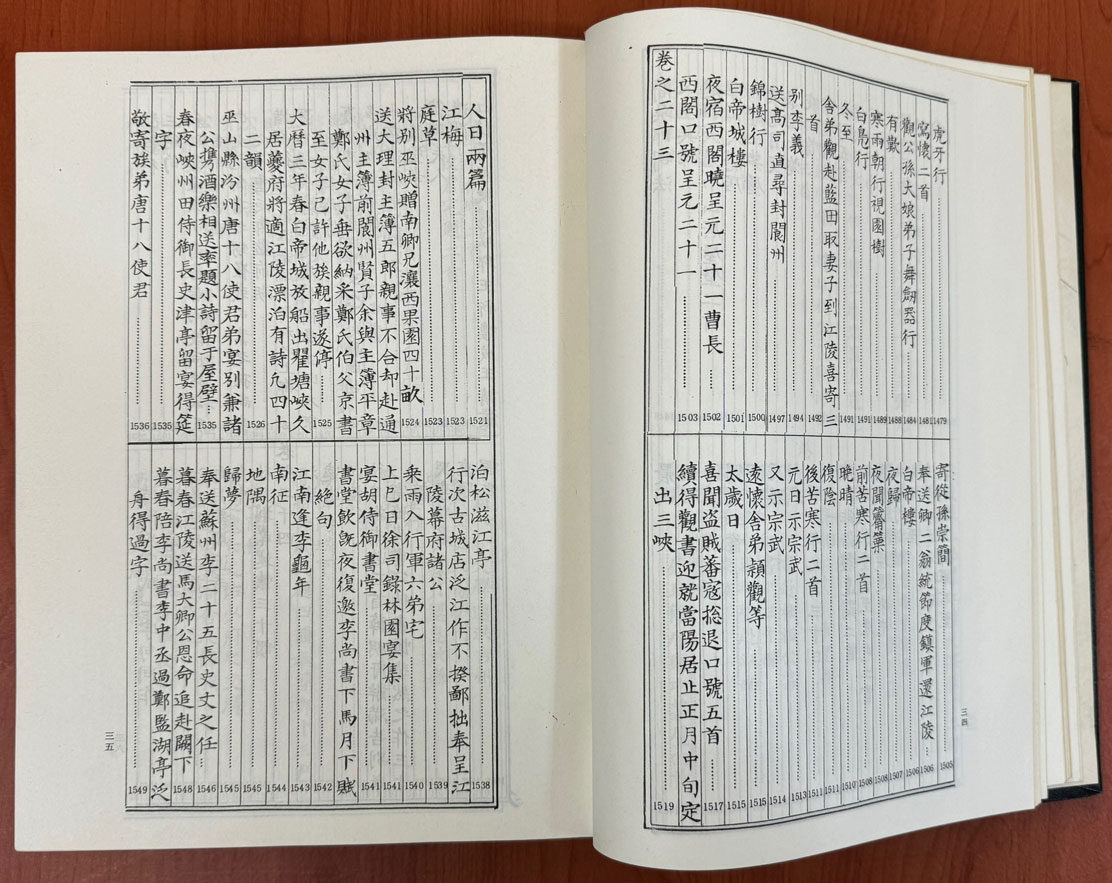 虎牙行 1479
寫懷二首 1481
觀公孫大娘弟子舞劒器行 1484
有歎 1488
寒雨朝行視園樹 1489
白鳧行 1491
冬至 1491
舍弟觀赴藍田取妻子到江陵喜寄三
首 1492
别李義 1494
送高司直尋封閬州 1497
錦樹行 1500
白帝城樓 1501
夜宿西閣曉呈元二十一曹長 1502
西閣口號呈元二十一 1503
卷之二十三
寄從孫崇簡 1505
奉送卿二翁統節度鎮軍還江陵 1506
白帝樓 1506
夜歸 1507
夜聞觱篥 1508
前苦寒行二首 1508
晚晴 1510
復陰 1511
後苦寒行二首 1511
元日示宗武 1513
又示宗武 1514
遠懷舍弟穎觀等 1515
太歲日 1515
喜聞盜賊蕃寇捴退口號五首 1517
續得觀書迎就當陽居止正月中旬定
出三峽 1519
三四
人日兩篇 1521
江梅 1523
庭草 1523
將别巫峽贈南卿兄瀼西果園四十畝 1524
送大理封主簿五郎親事不合却赴通
州主簿前閬州賢子余與主簿平章
鄭氏女子垂欲納采鄭氏伯父京書
至女子已許他族親事遂停 1525
大曆三年春白帝城放船出瞿塘峽久
居夔府將適江陵漂泊有詩凡四十
二韻 1526
巫山縣汾州唐十八使君弟宴别兼諸
公攜酒樂相送率題小詩留于屋壁 1535
春夜峽州田侍御長史津亭留宴得筵
字 1535
敬寄族弟唐十八使君 1536
泊松滋江亭 1538
行次古城店泛江作不揆鄙拙奉呈江
陵幕府諸公 1539
乘雨入行軍六弟宅 1540
上巳日徐司錄林園宴集 1541
宴胡侍御書堂 1541
書堂飲旣夜復邀李尚書下馬月下賦
絶句 1542
江南逢李龜年 1543
南征 1544
地隅 1545
歸夢 1545
奉送蘇州李二十五長史丈之任 1546
暮春江陵送馬大卿公恩命追赴闕下 1548
暮春陪李尚書李中丞過鄭監湖亭泛
舟得過字 1549
三五